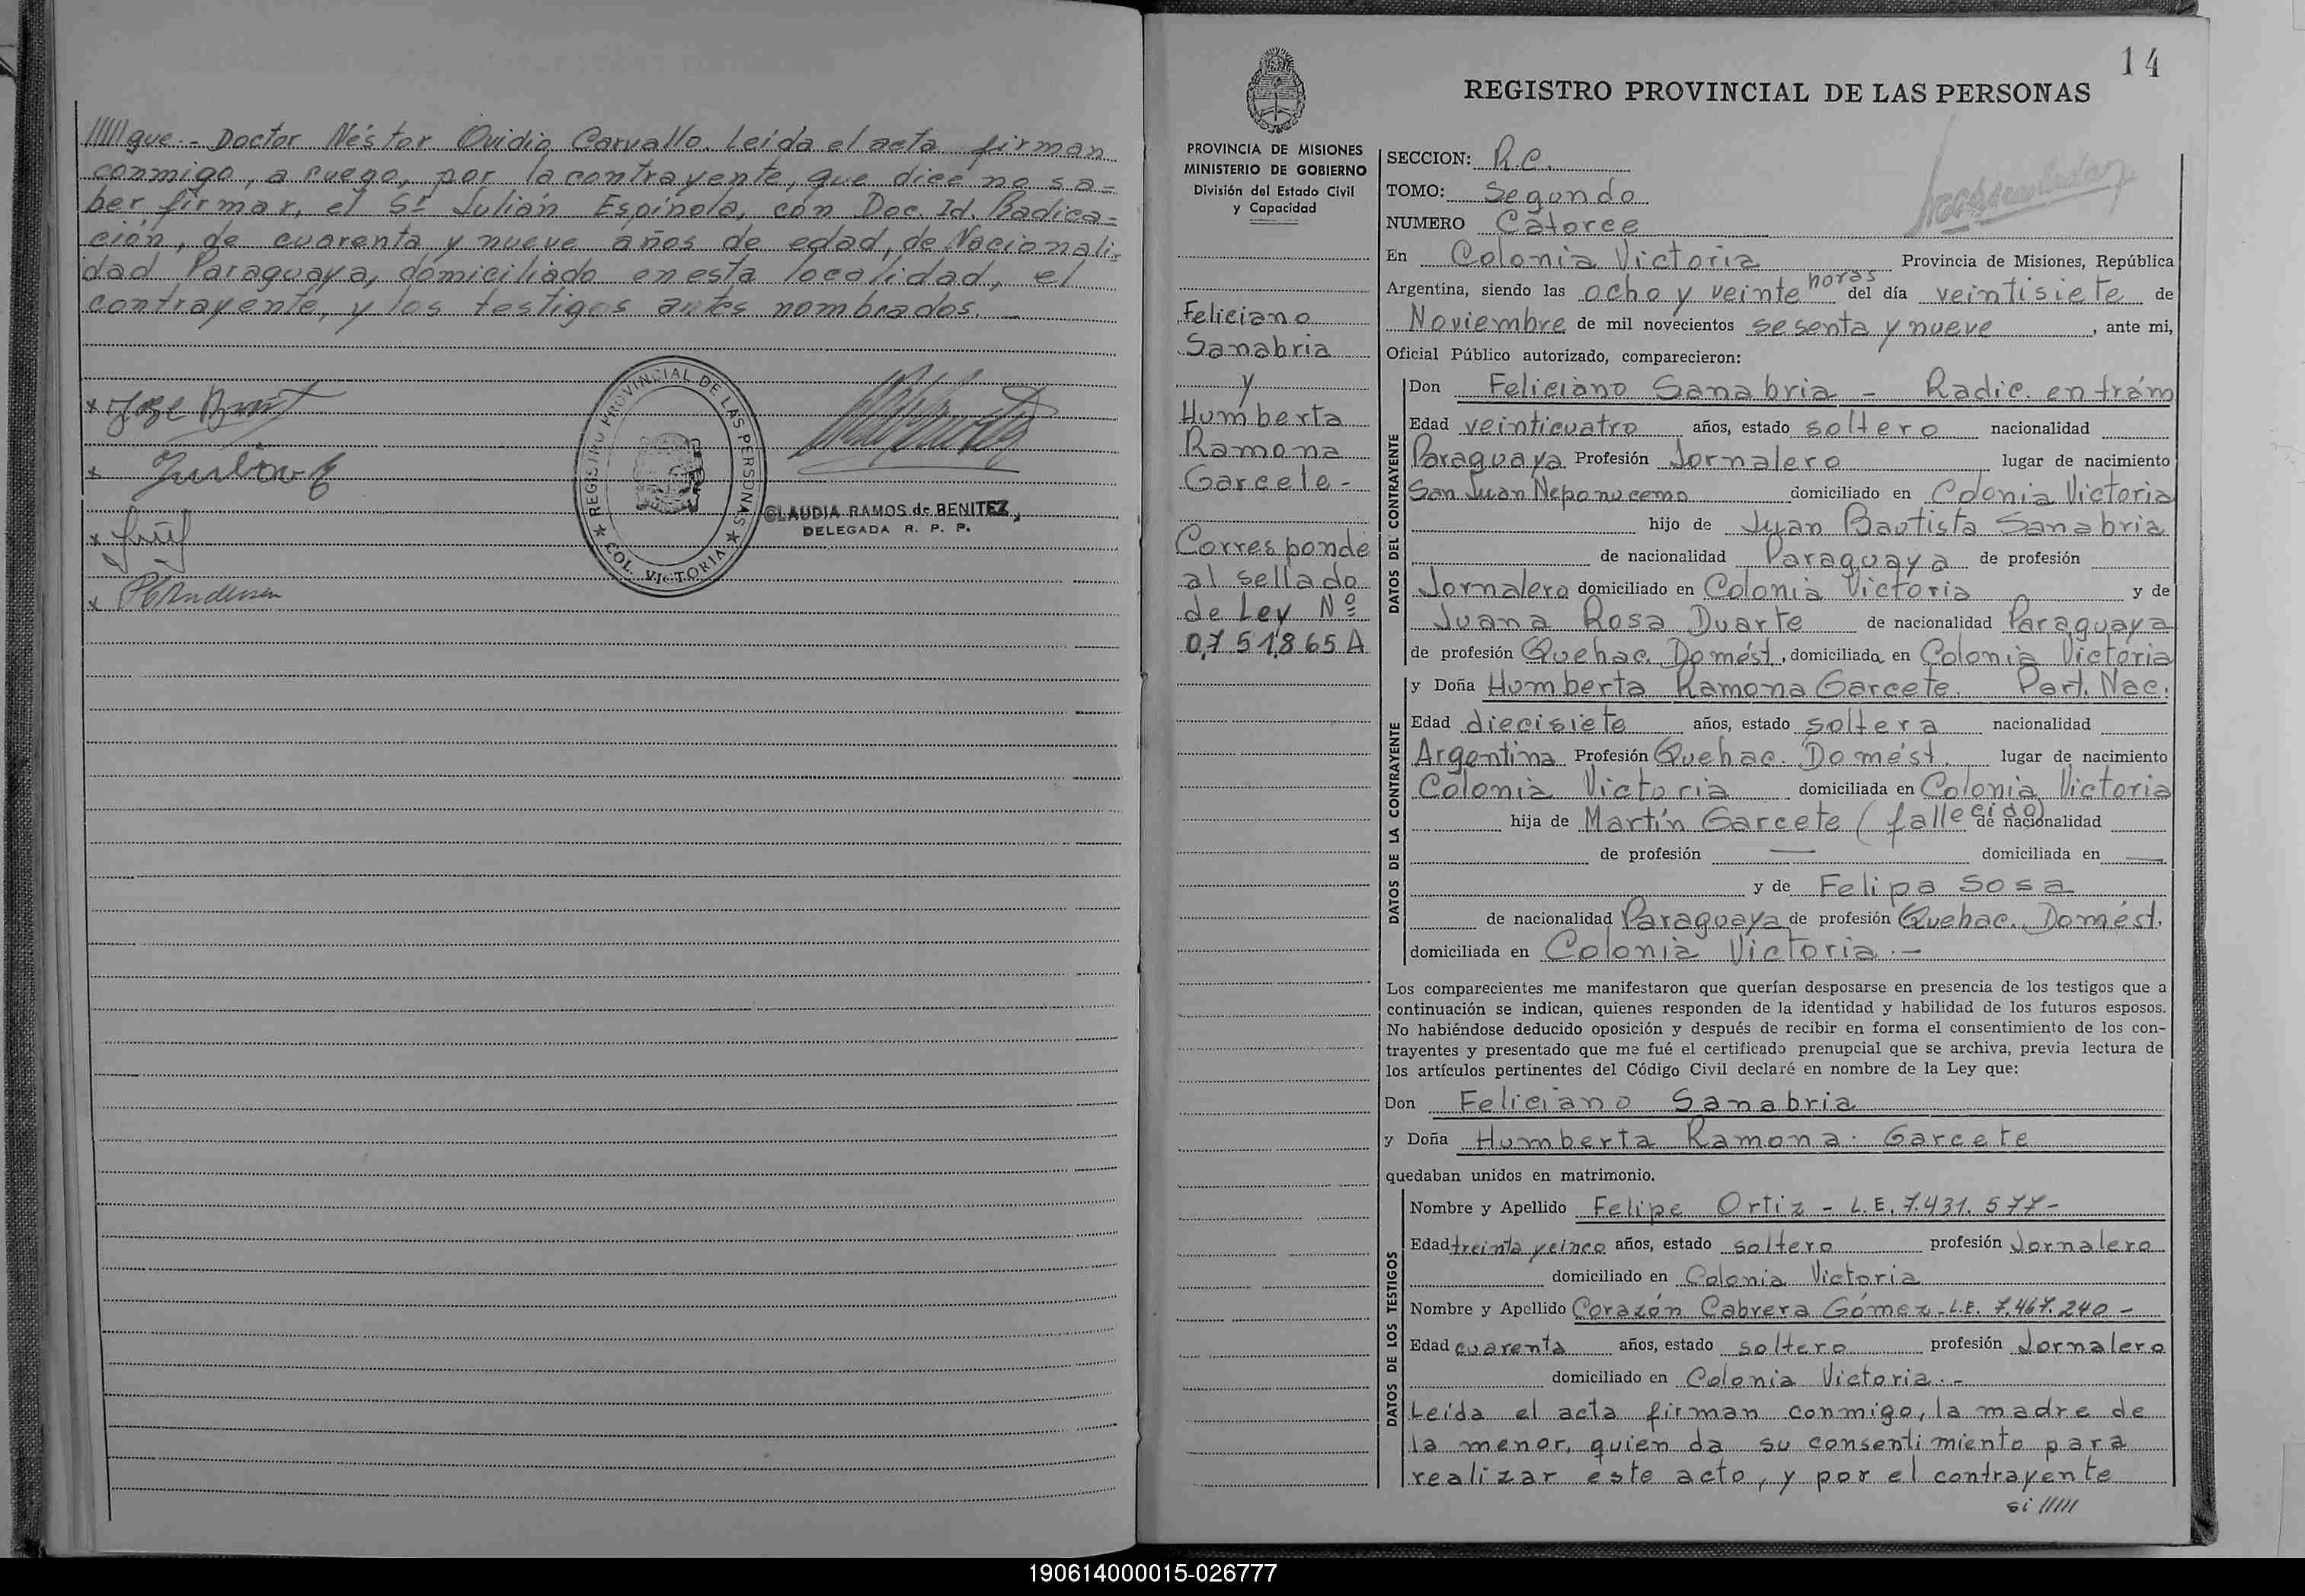 /////gue.- Doctor Néstor Ovidio Carvallo. Leída el acta firman
conmigo, a ruego, por la contrayente, que dice no sa=
ber firmar, el Sr Julián Espínola, con Doc. Id. Radica=
ción, de cuarenta y nueve años de edad, de Nacionali=
dad Paraguaya, domiciliado en esta localidad, el
contrayente, y los testigos antes nombrados. -
x Jose
x
x
x Andersen
REGISTRO PROVINCIAL DE LAS PERSONAS
★ COL. VICTORIA ★
CLAUDIA RAMOS de BENITEZ
DELEGADA R. P. P.
14
REGISTRO PROVINCIAL DE LAS PERSONAS
PROVINCIA DE MISIONES
MINISTERIO DE GOBIERNO
División del Estado Civil
y Capacidad
Feliciano
Sanabria
y
Humberta
Ramona
Garcete-
Corresponde
al sellado
de Ley Nº
0,751,865 A
SECCION: R.C.
TOMO: Segundo
NUMERO Catorce
En Colonia Victoria Provincia de Misiones, República
Argentina, siendo las ocho y veinte horas del día veintisiete de
Noviembre de mil novecientos sesenta y nueve, ante mi,
Oficial Público autorizado, comparecieron:
DATOS DEL CONTRAYENTE
Don Feliciano Sanabria - Radic. en trám
Edad veinticuatro años, estado soltero nacionalidad
Paraguaya Profesión Jornalero lugar de nacimiento
San Juan Neponucemo domiciliado en Colonia Victoria
hijo de Juan Bautista Sanabria
de nacionalidad Paraguaya de profesión
Jornalero domiciliado en Colonia Victoria y de
Juana Rosa Duarte de nacionalidad Paraguaya
de profesión Quehac. Domést., domiciliada en Colonia Victoria
DATOS DE LA CONTRAYENTE
y Doña Humberta Ramona Garcete. Part. Nac.
Edad diecisiete años, estado soltera nacionalidad
Argentina Profesión Quehac. Domést. lugar de nacimiento
Colonia Victoria domiciliada en Colonia Victoria
hija de Martín Garcete (fallecido) de nacionalidad
de profesión — domiciliada en —
y de Felipa Sosa
de nacionalidad Paraguaya de profesión Quehac. Domést.
domiciliada en Colonia Victoria.-
Los comparecientes me manifestaron que querían desposarse en presencia de los testigos que a
continuación se indican, quienes responden de la identidad y habilidad de los futuros esposos.
No habiéndose deducido oposición y después de recibir en forma el consentimiento de los con-
trayentes y presentado que me fué el certificado prenupcial que se archiva, previa lectura de
los artículos pertinentes del Código Civil declaré en nombre de la Ley que:
Don Feliciano Sanabria
y Doña Humberta Ramona Garcete
quedaban unidos en matrimonio.
DATOS DE LOS TESTIGOS
Nombre y Apellido Felipe Ortiz - L.E. 7.431.577-
Edad treinta y cinco años, estado soltero profesión Jornalero
domiciliado en Colonia Victoria
Nombre y Apellido Corazón Cabrera Gómez - L.E. 7.467.240 -
Edad cuarenta años, estado soltero profesión Jornalero
domiciliado en Colonia Victoria.-
Leída el acta firman conmigo, la madre de
la menor, quien da su consentimiento para
realizar este acto, y por el contrayente
si /////
190614000015-026777